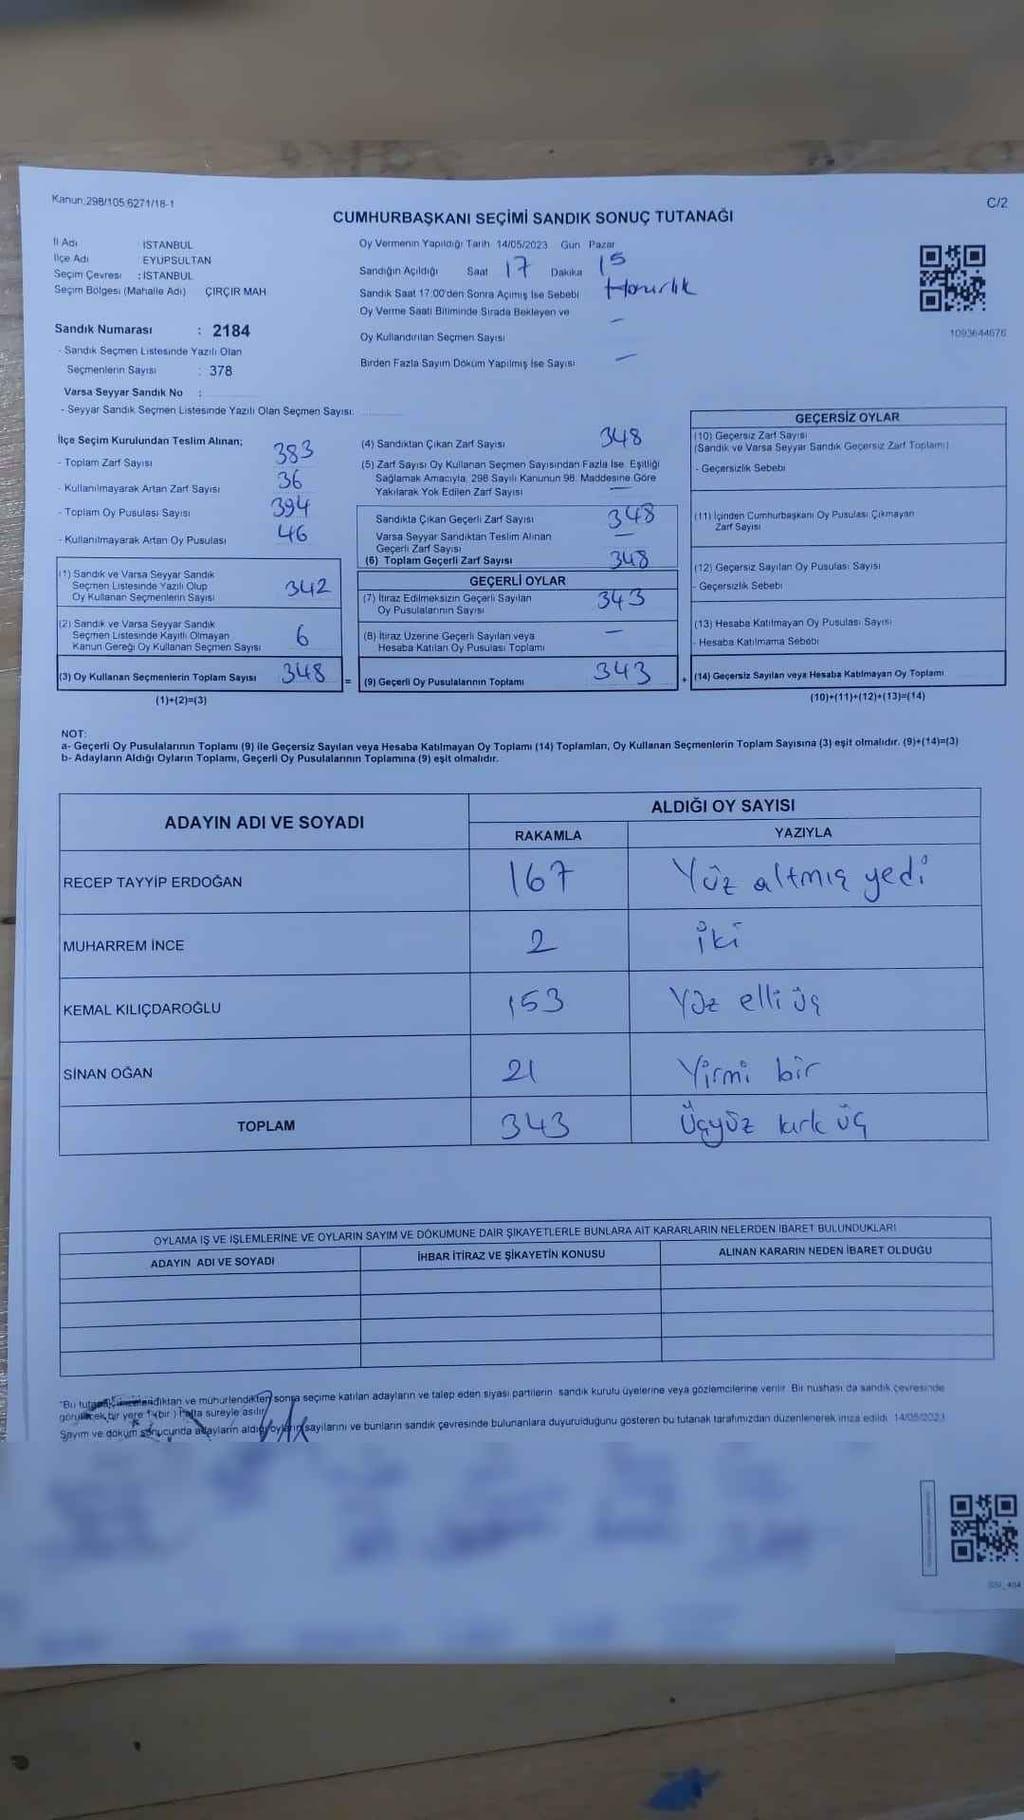 Kanun:298/105 6271/18-1
C/2
CUMHURBAŞKANI SEÇİMİ SANDIK SONUÇ TUTANAĞI
İl Adı İSTANBUL
İlçe Adı EYÜPSULTAN
Seçim Çevresi : İSTANBUL
Seçim Bölgesi (Mahalle Adı) ÇIRÇIR MAH
Sandık Numarası : 2184
- Sandık Seçmen Listesinde Yazılı Olan
Seçmenlerin Sayısı : 378
Varsa Seyyar Sandık No :
- Seyyar Sandık Seçmen Listesinde Yazılı Olan Seçmen Sayısı:
Oy Vermenin Yapıldığı Tarih 14/05/2023 Gün Pazar
Sandığın Açıldığı Saat 17 Dakika 15
Sandık Saat 17:00'den Sonra Açılmış İse Sebebi Hazırlık
Oy Verme Saati Bitiminde Sırada Bekleyen ve
Oy Kullandırılan Seçmen Sayısı —
Birden Fazla Sayım Döküm Yapılmış İse Sayısı —
1093644676
İlçe Seçim Kurulundan Teslim Alınan;
- Toplam Zarf Sayısı 383
- Kullanılmayarak Artan Zarf Sayısı 36
- Toplam Oy Pusulası Sayısı 394
- Kullanılmayarak Artan Oy Pusulası 46
(1) Sandık ve Varsa Seyyar Sandık
Seçmen Listesinde Yazılı Olup
Oy Kullanan Seçmenlerin Sayısı 342
(2) Sandık ve Varsa Seyyar Sandık
Seçmen Listesinde Kayıtlı Olmayan
Kanun Gereği Oy Kullanan Seçmen Sayısı 6
(3) Oy Kullanan Seçmenlerin Toplam Sayısı 348
(1)+(2)=(3)
(4) Sandıktan Çıkan Zarf Sayısı 348
(5) Zarf Sayısı Oy Kullanan Seçmen Sayısından Fazla İse, Eşitliği
Sağlamak Amacıyla, 298 Sayılı Kanunun 98. Maddesine Göre
Yakılarak Yok Edilen Zarf Sayısı —
Sandıkta Çıkan Geçerli Zarf Sayısı 348
Varsa Seyyar Sandıktan Teslim Alınan
Geçerli Zarf Sayısı —
(6) Toplam Geçerli Zarf Sayısı 348
GEÇERLİ OYLAR
(7) İtiraz Edilmeksizin Geçerli Sayılan
Oy Pusulalarının Sayısı 343
(8) İtiraz Üzerine Geçerli Sayılan veya
Hesaba Katılan Oy Pusulası Toplamı —
= (9) Geçerli Oy Pusulalarının Toplamı 343 +
GEÇERSİZ OYLAR
(10) Geçersiz Zarf Sayısı
(Sandık ve Varsa Seyyar Sandık Geçersiz Zarf Toplamı)
- Geçersizlik Sebebi
(11) İçinden Cumhurbaşkanı Oy Pusulası Çıkmayan
Zarf Sayısı
(12) Geçersiz Sayılan Oy Pusulası Sayısı
- Geçersizlik Sebebi
(13) Hesaba Katılmayan Oy Pusulası Sayısı
- Hesaba Katılmama Sebebi
(14) Geçersiz Sayılan veya Hesaba Katılmayan Oy Toplamı
(10)+(11)+(12)+(13)=(14)
NOT:
a- Geçerli Oy Pusulalarının Toplamı (9) ile Geçersiz Sayılan veya Hesaba Katılmayan Oy Toplamı (14) Toplamları, Oy Kullanan Seçmenlerin Toplam Sayısına (3) eşit olmalıdır. (9)+(14)=(3)
b- Adayların Aldığı Oyların Toplamı, Geçerli Oy Pusulalarının Toplamına (9) eşit olmalıdır.
ADAYIN ADI VE SOYADI ALDIĞI OY SAYISI
RAKAMLA YAZIYLA
RECEP TAYYİP ERDOĞAN 167 Yüz altmış yedi
MUHARREM İNCE 2 iki
KEMAL KILIÇDAROĞLU 153 Yüz elli üç
SİNAN OĞAN 21 Yirmi bir
TOPLAM 343 Üçyüz kırk üç
OYLAMA İŞ VE İŞLEMLERİNE VE OYLARIN SAYIM VE DÖKÜMÜNE DAİR ŞİKAYETLERLE BUNLARA AİT KARARLARIN NELERDEN İBARET BULUNDUKLARI
ADAYIN ADI VE SOYADI İHBAR İTİRAZ VE ŞİKAYETİN KONUSU ALINAN KARARIN NEDEN İBARET OLDUĞU
"Bu tutanak imzalandıktan ve mühürlendikten sonra seçime katılan adayların ve talep eden siyasi partilerin sandık kurulu üyelerine veya gözlemcilerine verilir. Bir nüshası da sandık çevresinde
görülecek bir yere 1 (bir) hafta süreyle asılır.
Sayım ve döküm sonucunda adayların aldığı oyların sayılarını ve bunların sandık çevresinde bulunanlara duyurulduğunu gösteren bu tutanak tarafımızdan düzenlenerek imza edildi. 14/05/2023